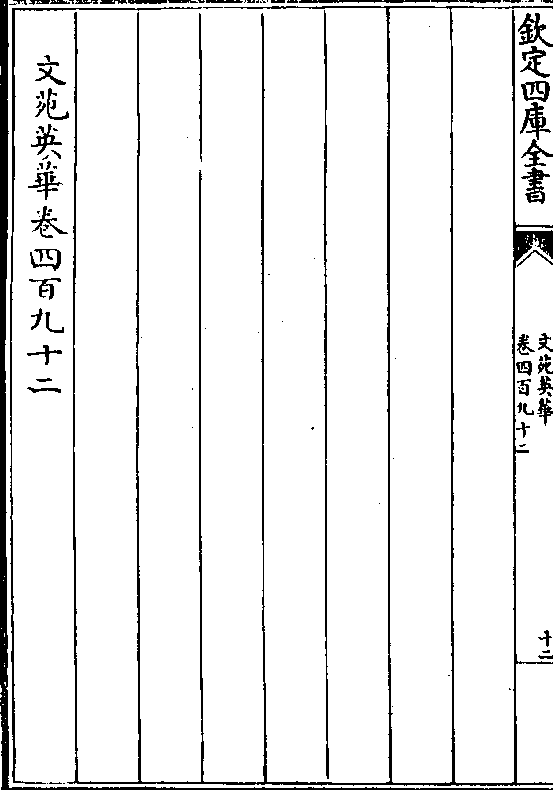 欽定四庫全書
文苑英華
卷四百九十二
十二
文苑英華卷四百九十二